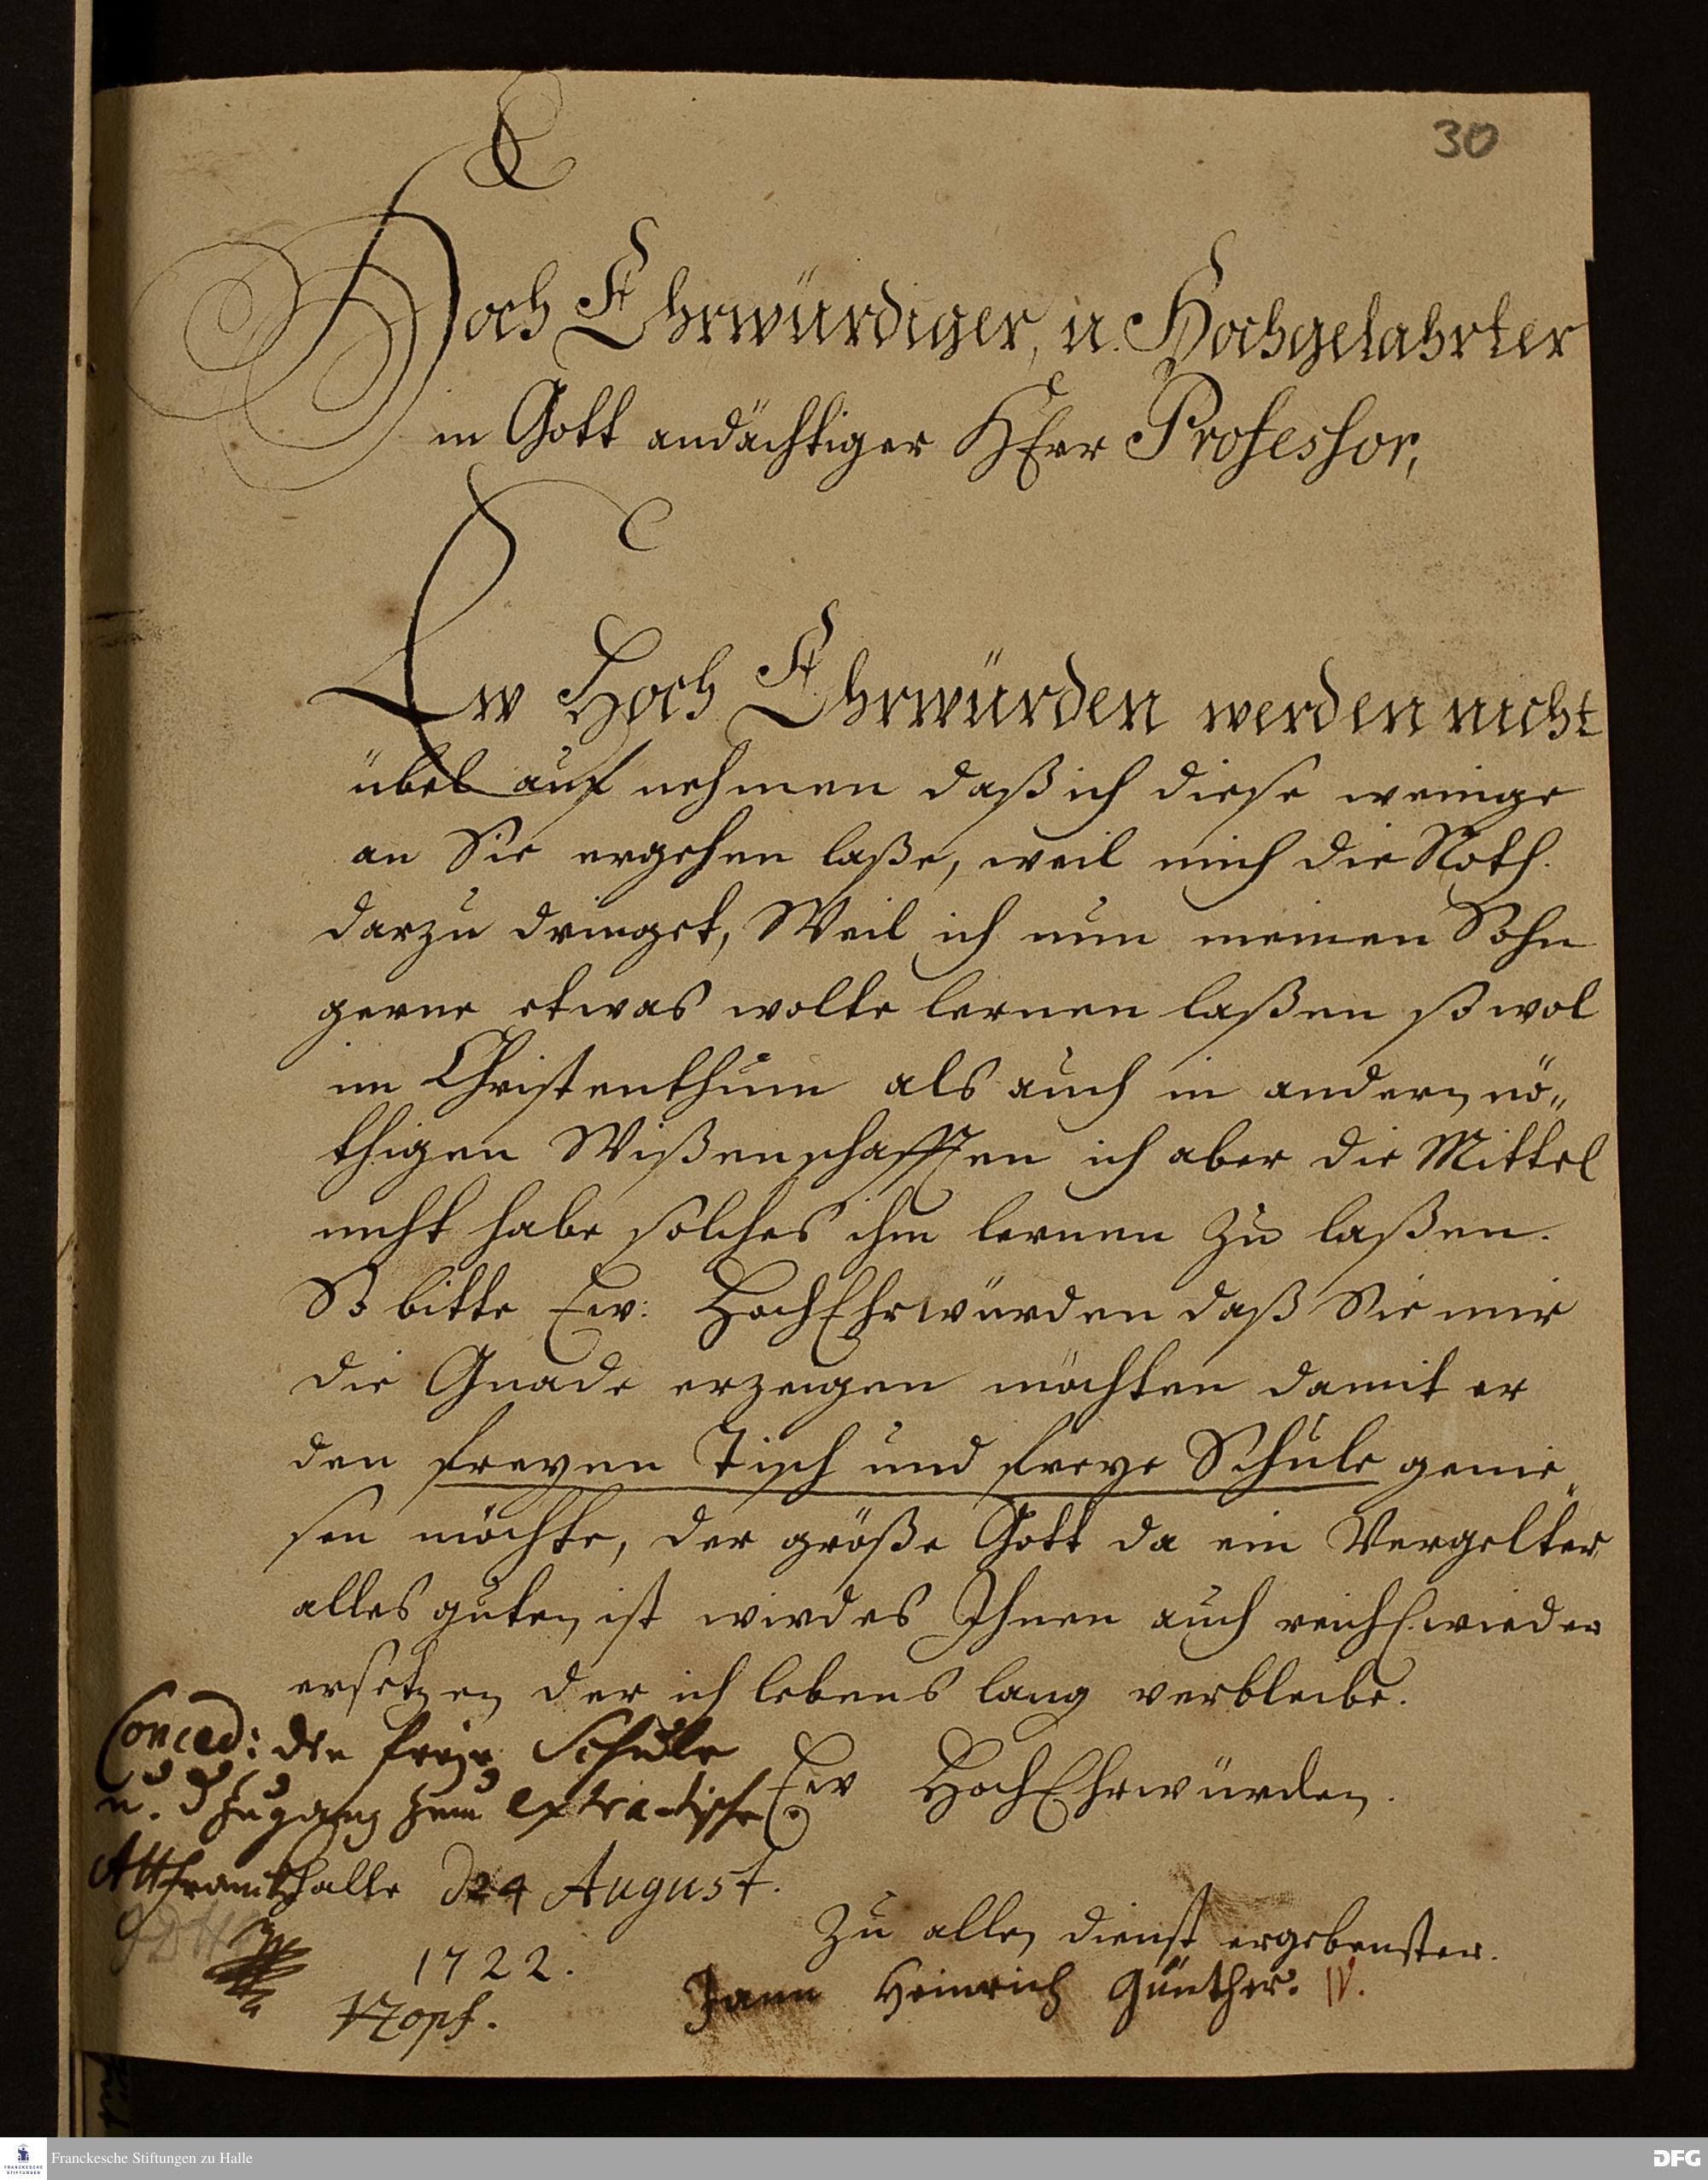 30
Hoch Ehrwürdiger, u. Hochgelahrter
in Gott andächtiger HErr Professor,
Ew Hoch Ehrwürden werden nicht
übel auf nehmen daß ich diese wenige
an Sie ergehen laße, weil mich die Noth.
darzu dringet, Weil ich nun meinen Sohn
gerne etwas wolte lernen laßen so wol
im Christenthum als auch in andern nö„
thigen Wißenschafften ich aber die Mittel
nicht habe solches ihm lernen zu laßen.
So bitte Ew: HochEhrwürden daß Sie mir
die Gnade erzeigen möchten damit er
den freyen Tisch und freye Schule genie„
sen möchte, der größe Gott da ein Vergelter
alles guten ist wird es Ihnen auch reichl. wieder
ersetzen der ich lebens lang verbleibe.
Conced: die freye Schule
u. d Zugang zum extra-tische
Ew HochEhrwürden.
Halle d 24 August.
1722.
Zu allen dienst ergebenster.
Jann Heinrich Günther. IV.
Zopf.
Franckesche Stiftungen zu Halle
DFG